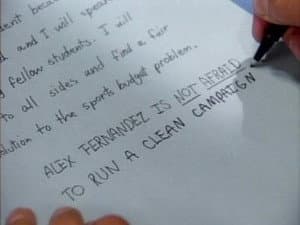 ent becau
d and I will spea
y fellow students. I will
to all sides and find a fair
olution to the sports budget problem.
ALEX FERNANDEZ IS NOT AFRAID
TO RUN A CLEAN CAMPAIGN